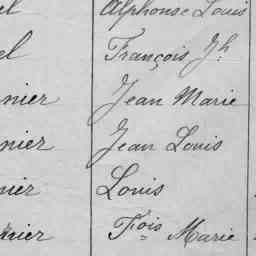 el Alphonse Louis
el François Jh
nier Jean Marie
nier Jean Louis
nier Louis
nier Fois Marie